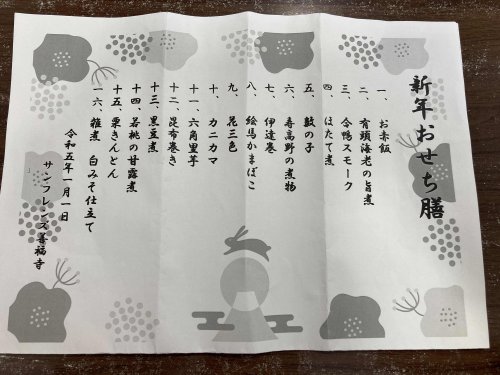 新年おせち膳
一、お赤飯
二、有頭海老の旨煮
三、合鴨スモーク
四、ほたて煮
五、数の子
六、寿高野の煮物
七、伊達巻
八、絵馬かまぼこ
九、昆三色
十、カニカマ
十一、六角里芋
十二、昆布巻き
十三、黒豆煮
十四、若桃の甘露煮
十五、栗きんとん
一六、雑煮 白みそ仕立て
令和五年一月一日
サンフレンズ善福寺